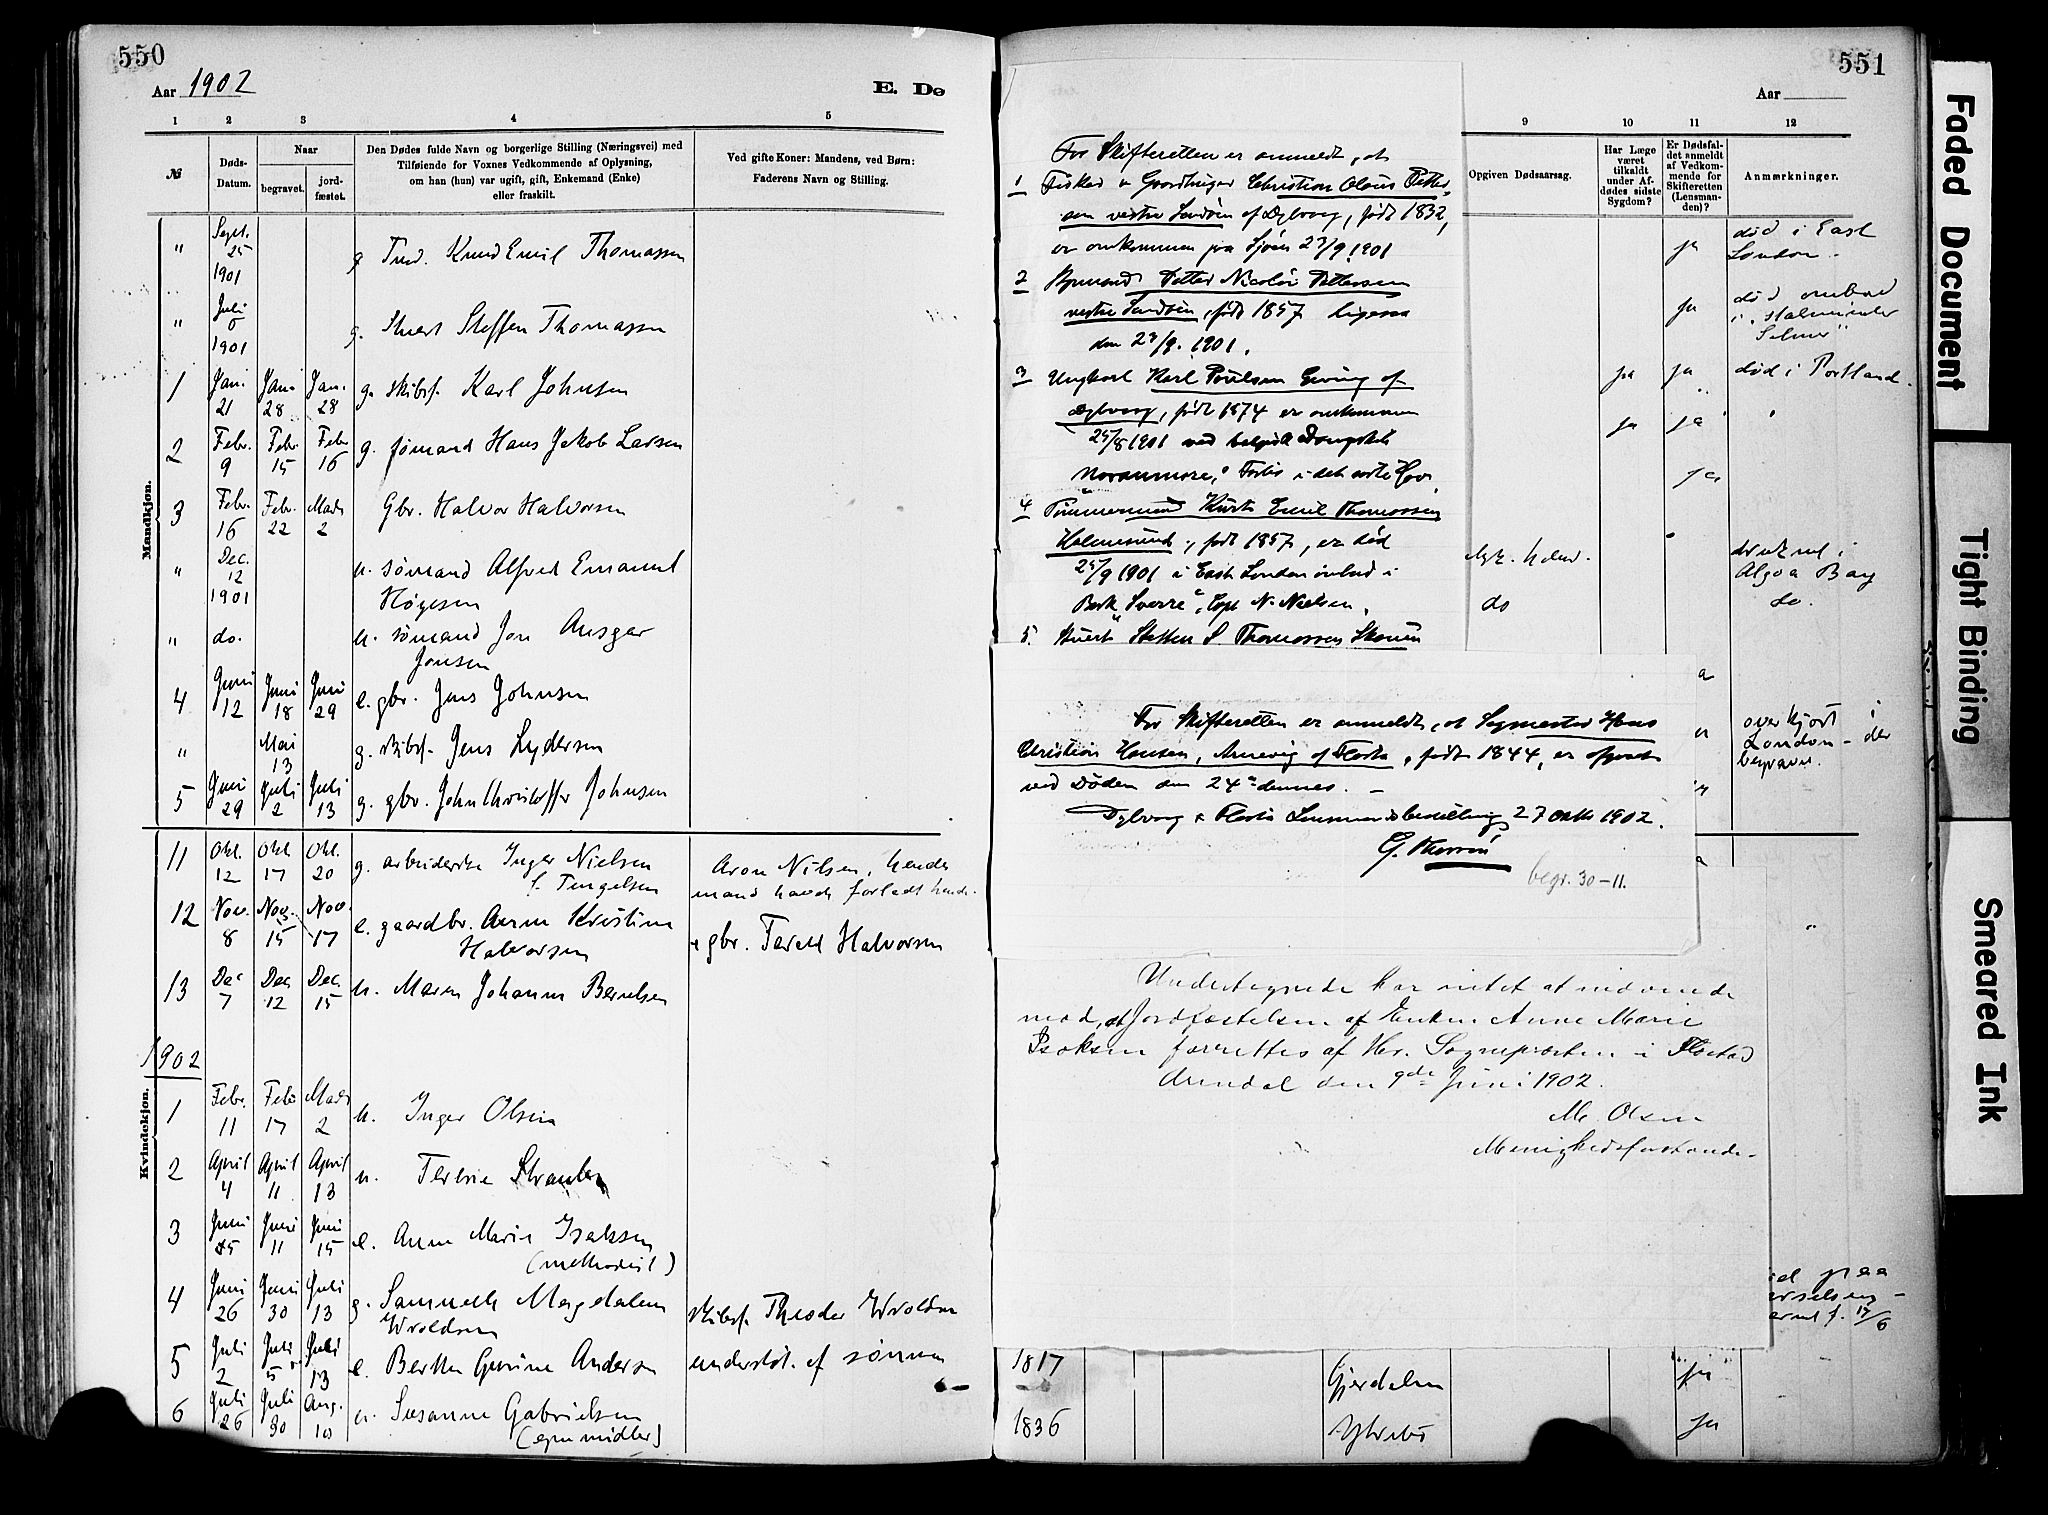 550
Aar 1902
E. Dø
1 2 3 4 5
№
Døds-Datum.
Naar
begravet.
jord-fæstet.
Den Dødes fulde Navn og borgerlige Stilling (Næringsvei) med
Tilføiende for Voxnes Vedkommende af Oplysning,
om han (hun) var ugift, gift, Enkemand (Enke)
eller fraskilt.
Ved gifte Koner: Mandens, ved Børn:
Faderens Navn og Stilling.
Mandkjøn.
" Sept. 25 1901 g Tmd. Knud Emil Thomassen
" Juli 1901 g. Stuert Steffen Thomassen
1 Jan 21 Jan 28 Jan. 28 g. skibsf. Karl Johnsen
2 Febr. 9 Febr 15 Febr 16 g. sømand Hans Jakob Larsen
3 Febr. 16 Febr. 22 Mads 2 Gbr. Halvor Halvorsen
" Dec. 12 1901 u. sømand Alfred Emanuel
Høgesen
" do. u. sømand Jon Ansgar
Jonsen
4 Juni 12 Juni 18 Juni 29 e. gbr. Jens Johnsen
" Mai 13 g. skibsf. Jens Lydersen
5 Juni 29 Juli 2 Juli 13 g. gbr. John Christoffer Johnsen
11 Okt. 12 Okt 17 Okt. 20 g. arbeiderske Inger Nielsen
f. Tengelsen
Aron Nilsen, hendes
mand havde forladt hende.
12 Nov. 8 Nov. 15 Nov. 17 e. gaardbr. Anne Kristine
Halvorsen
gbr. Terell Halvorsen
13 Dec 7 Dec 12 Dec. 15 u. Maren Johanne Berntsen
1902
Kvindekjøn.
1 Febr. 11 Febr 17 Mads 2 u. Inger Olsen
2 April 4 April 11 April 13 u. Terese
3 Juni 5 Juni 11 Juni 15 e. Anne Marie Isaksen
(methodist)
4 Juni 26 Juni 30 Juli 13 g. Magdalene
Wroldsen
skibsf. Theodor Wroldsen
5 Juli 2 Juli 5 Juli 13 e. Berthe Gurine Andersen
understøt. af sønnen
6 Juli 26 Juli 30 Aug. 10 u. Susanne Gabrielsen
(egne midler)
551
Aar
9 10 11 12
Opgiven Dødsaarsag.
Har Læge
været
tilkaldt
under Af-
dødes sidste
Sygdom?
Er Dødsfal-
det anmeldt
af Vedkom-
mende for
Skifteretten
(Lensman-
den)?
Anmærkninger.
For Skifteretten er anmeldt, at
1 Fisker & Gaardbruger Christian Olaus Petter-
sen vestre Sandøen af Dybvaag, født 1832,
er omkommen paa Sjøen 27/9 1901
2 Bymand Petter Nicolai Pettersen
vestre Sandøen, født 1857 ligesaa
den 27/9. 1901.
3 Ungkarl Karl Poulsen Geving af
Dybvaag, født 1874 er omkommen
25/8 1901 ved belgisk Dampskib
4 Tømmermand Knut Emil Thomassen
Holmesund, født 1857, er død
25/9 1901 i East London ombord i
Bark "Sverre", Capt N. Nielsen.
5. Stuert Steffen S. Thomassen
ja død i East
London.
ja død ombord
i
Selmer"
ja ja død i Portland.
ja ja "
ja
druknet i
Algoa Bay
do do.
overkjørt i
London - der
begravet.
For Skifteretten er anmeldt, at Sagmester Hans
Christian Hansen, Arnevig af Flosta, født 1844, er afgaaet
ved Døden den 24de dennes. –
Dybvaag & Flosta Lensmandsbestilling 27 Oktb 1902.
begr. 30-11.
Undertegnede har intet at indvende
mod, at Jordfæstelsen af Enken Anne Marie
Isaksen forrettes af Hr. Sognepræsten i Flostad
Arendal den 9de Juni 1902.
M. Olsen
Menighedsforstander.
paa
17/6
1817 Gjerdalen ja
1836 ja
Faded Document
Tight Binding
Smeared Ink